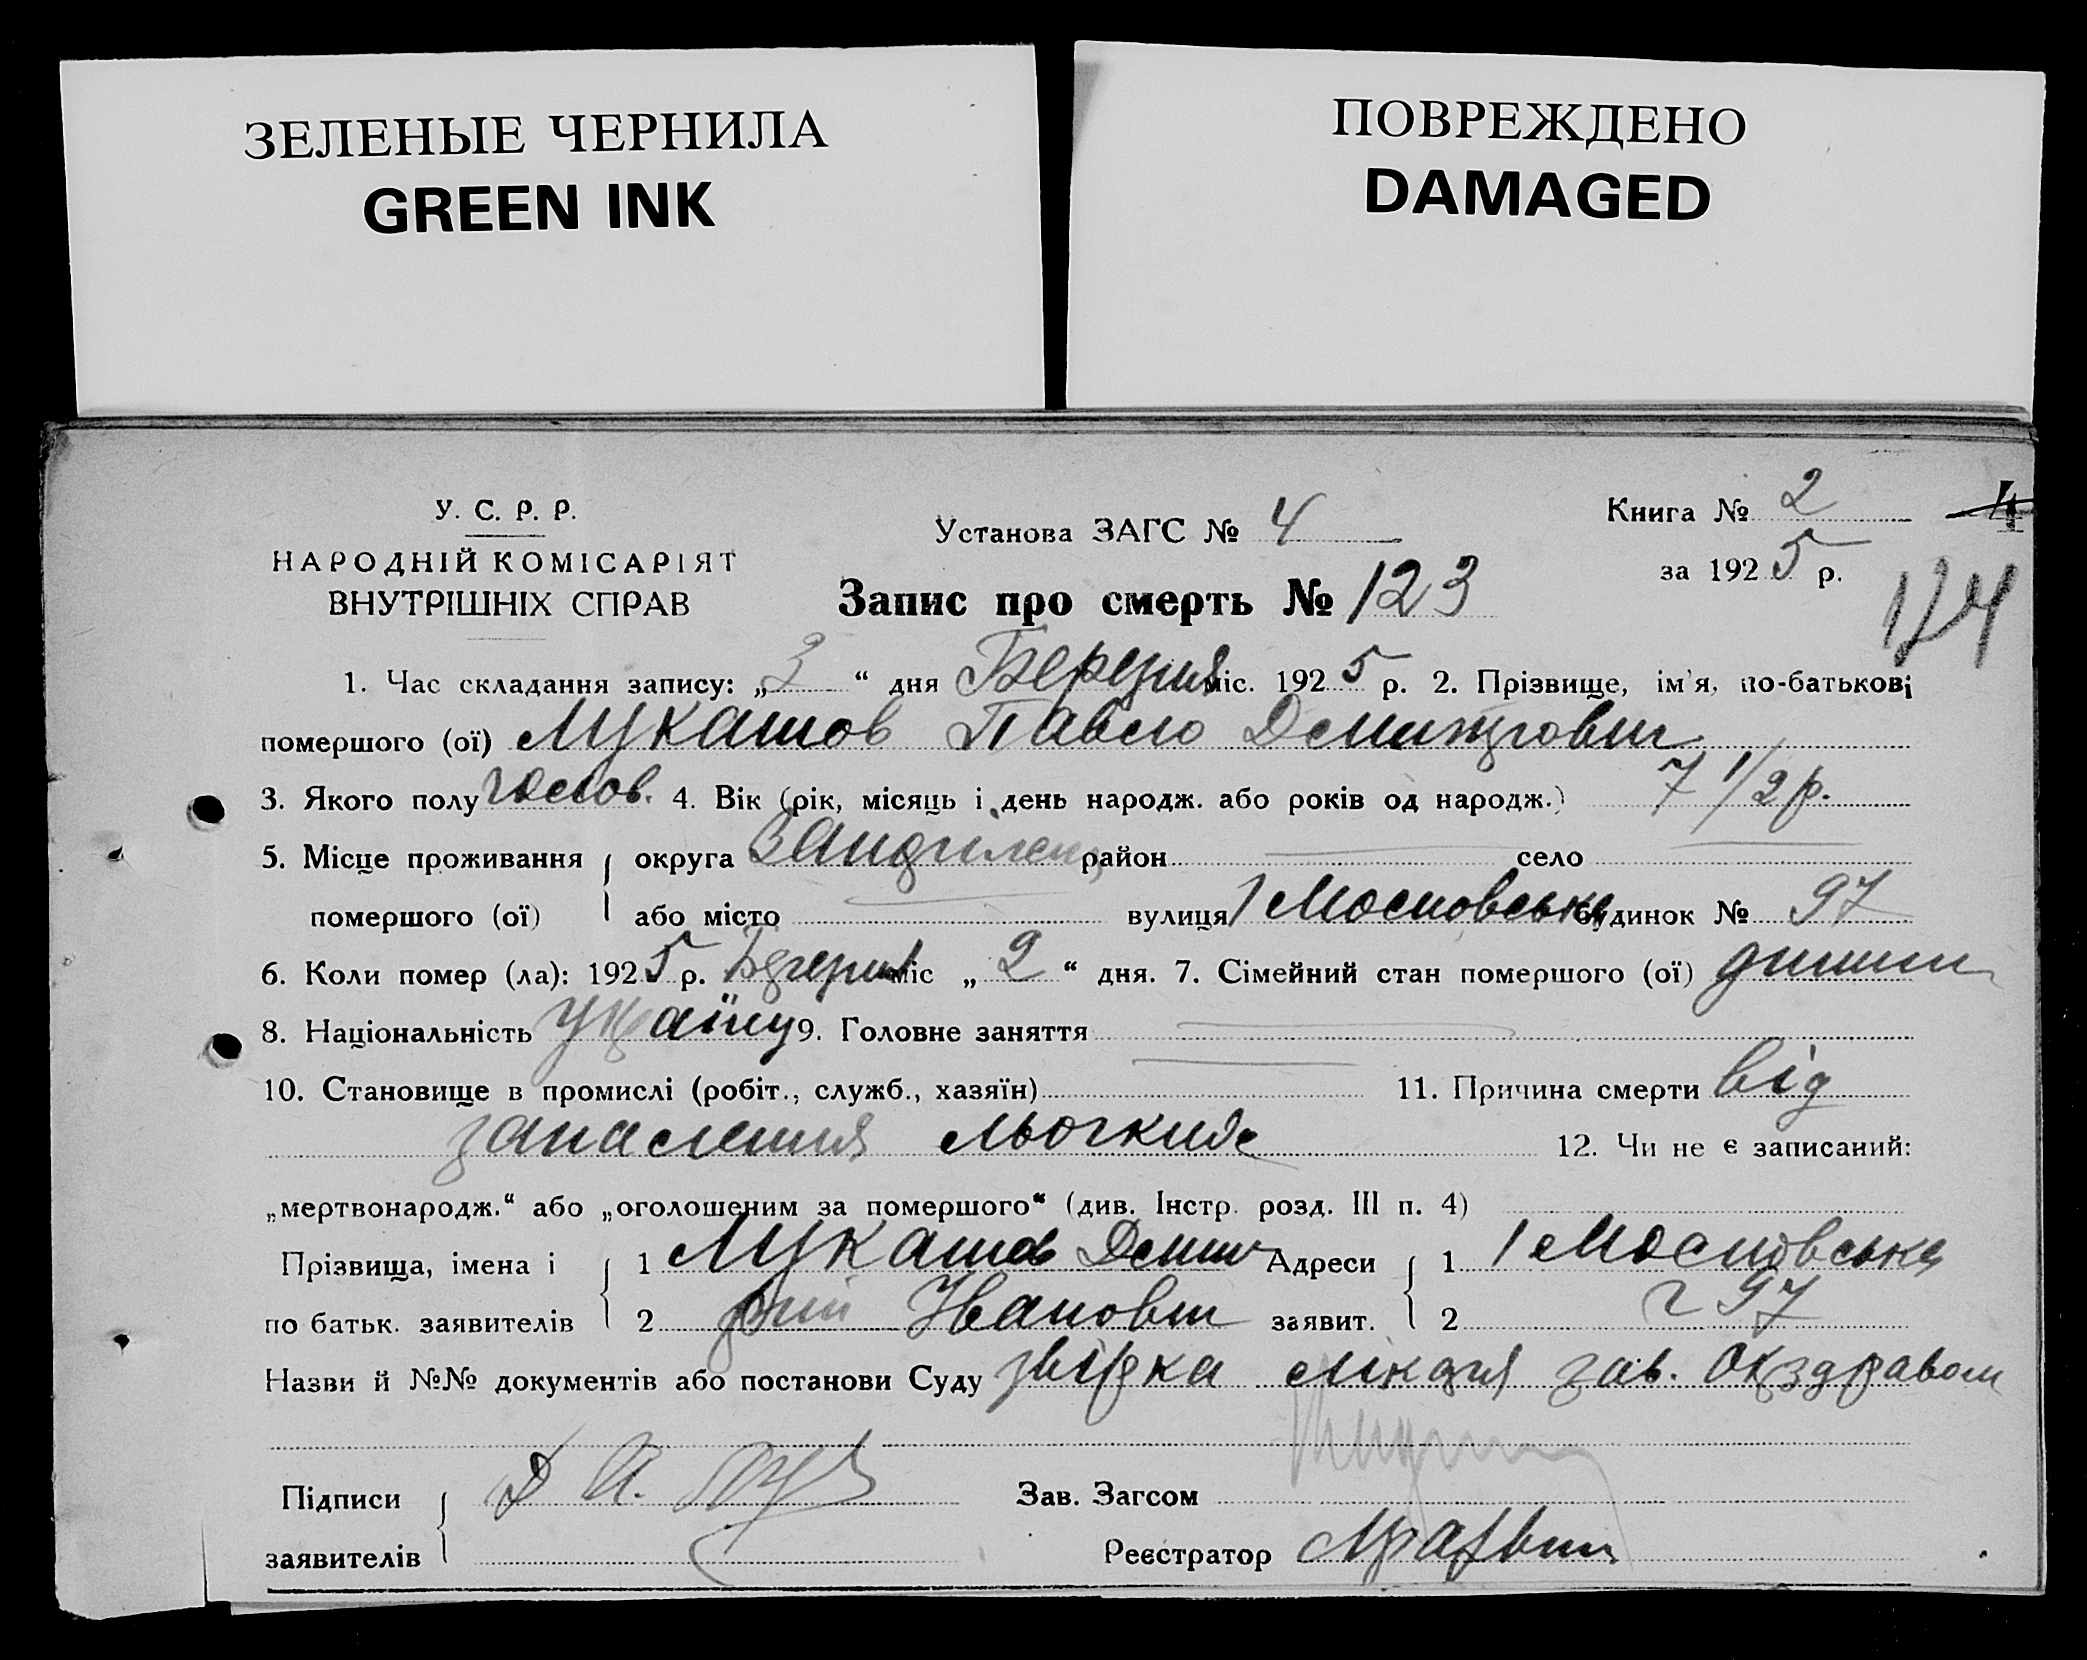 ЗЕЛЕНЫЕ ЧЕРНИЛА
GREEN INK
ПОВРЕЖДЕНО
DAMAGED
У. С. Р. Р.
НАРОДНІЙ КОМІСАРІЯТ
ВНУТРІШНІХ СПРАВ
Установа ЗАГС № 4
Книга № 2
4
за 1925 р.
Запис про смерть № 123
124
1. Час складання запису: „3“ дня Березня міс. 1925 р. 2. Прізвище, ім'я, по-батькові
помершого (ої) Лукашов Павло Дмитрович
3. Якого полу чолов. 4. Вік (рік, місяць і день народж. або років од народж.) 7 1/2 р.
5. Місце проживання округа район село
помершого (ої) або місто вулиця 1 Московська будинок № 97
6. Коли помер (ла): 1925 р. Березня міс „2“ дня. 7. Сімейний стан помершого (ої)
8. Національність Україн 9. Головне заняття
10. Становище в промислі (робіт., служб., хазяїн) 11. Причина смерти від
запалення льогких 12. Чи не є записаний:
„мертвонародж.“ або „оголошеним за помершого“ (див. Інстр. розд. III п. 4)
Прізвища, імена і 1 Лукашов Дми Адреси 1 1 Московська
по батьк. заявителів 2 трій Іванович заявит. 2 97
Назви й №№ документів або постанови Суду лікаря зав. Окздравом
Підписи Зав. Загсом
заявителів Реєстратор